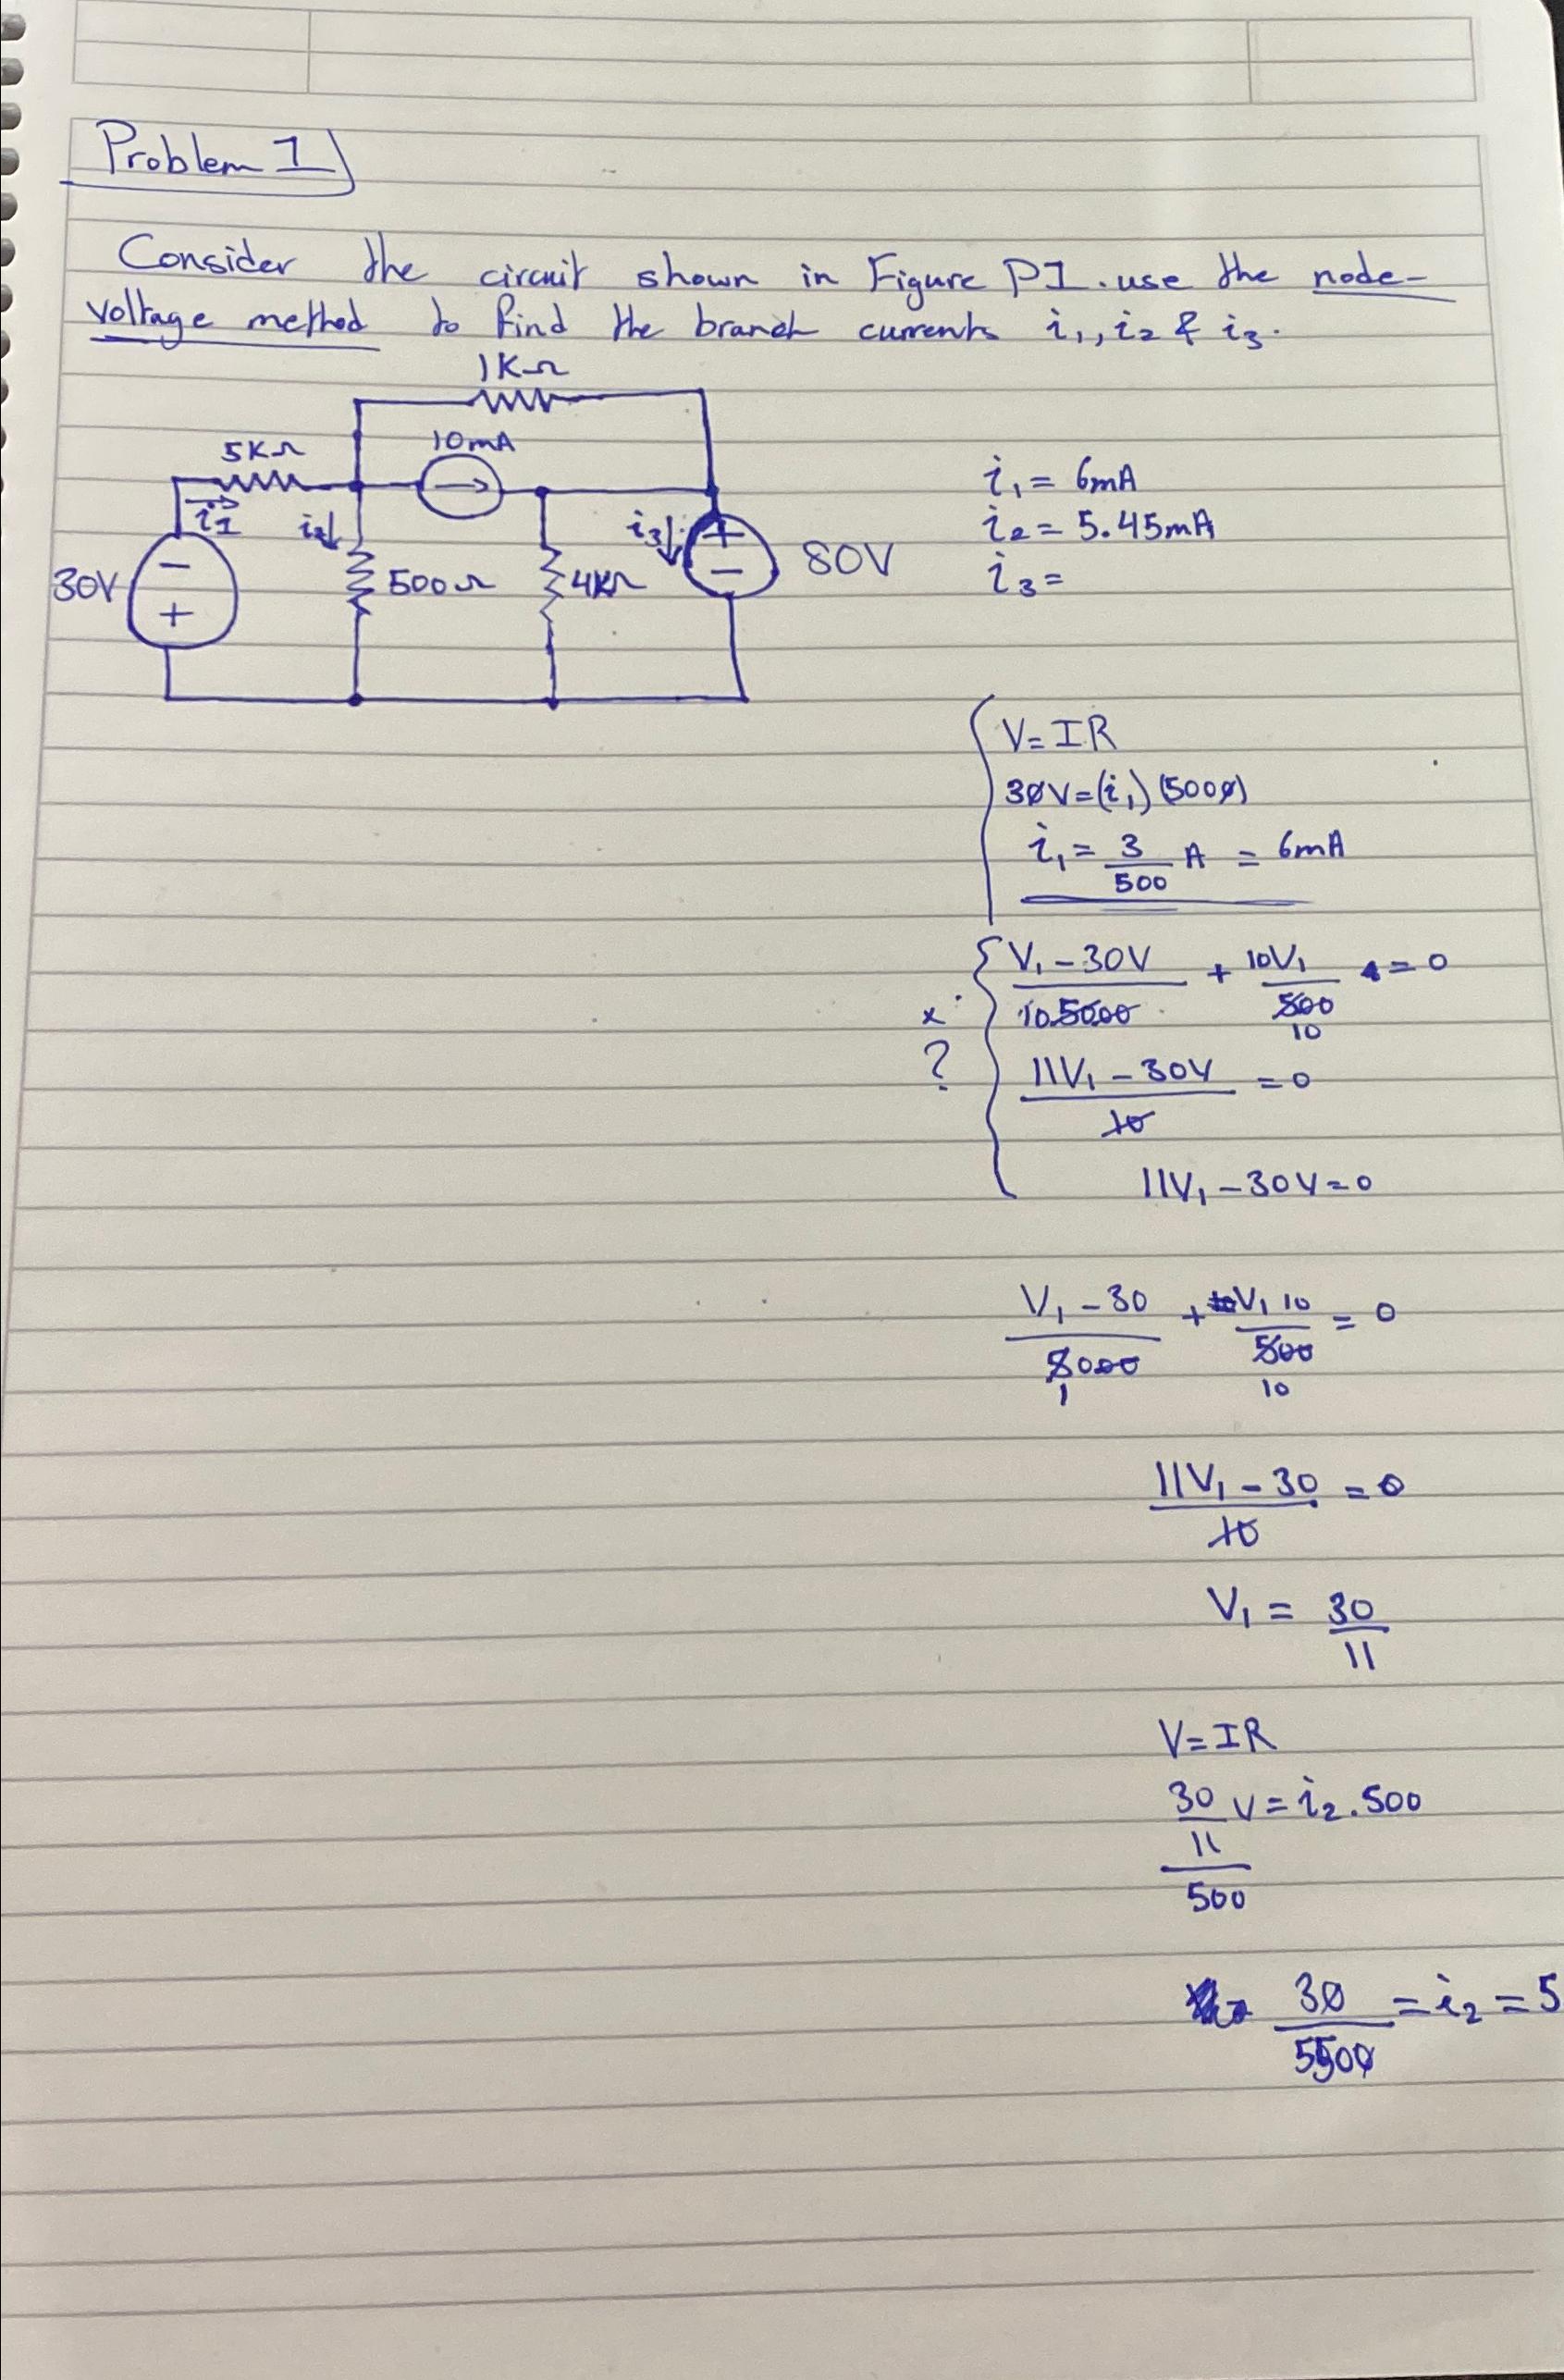 Problem 1
Consider the circuit shown in Figure P1. use the node-
voltage method to find the branch currents i₁, i₂ & i₃.
1KΩ
5KΩ
10mA
i₁
i₂
i₃
30V
-
+
500Ω
4KΩ
+
-
80V
i₁ = 6mA
i₂ = 5.45mA
i₃ =
V = IR
30V = (i₁) (5000)
i₁ = 3/500 A = 6mA
(V₁ - 30V)/5000 + 10V₁/500 = 0
10
10
x
?
(11V₁ - 30V)/10 = 0
11V₁ - 30V = 0
(V₁ - 30)/5000 + V₁ 10/500 = 0
1
10
(11V₁ - 30)/10 = 0
V₁ = 30/11
V = IR
30/11 V = i₂ . 500
500
30/5500 = i₂ = 5